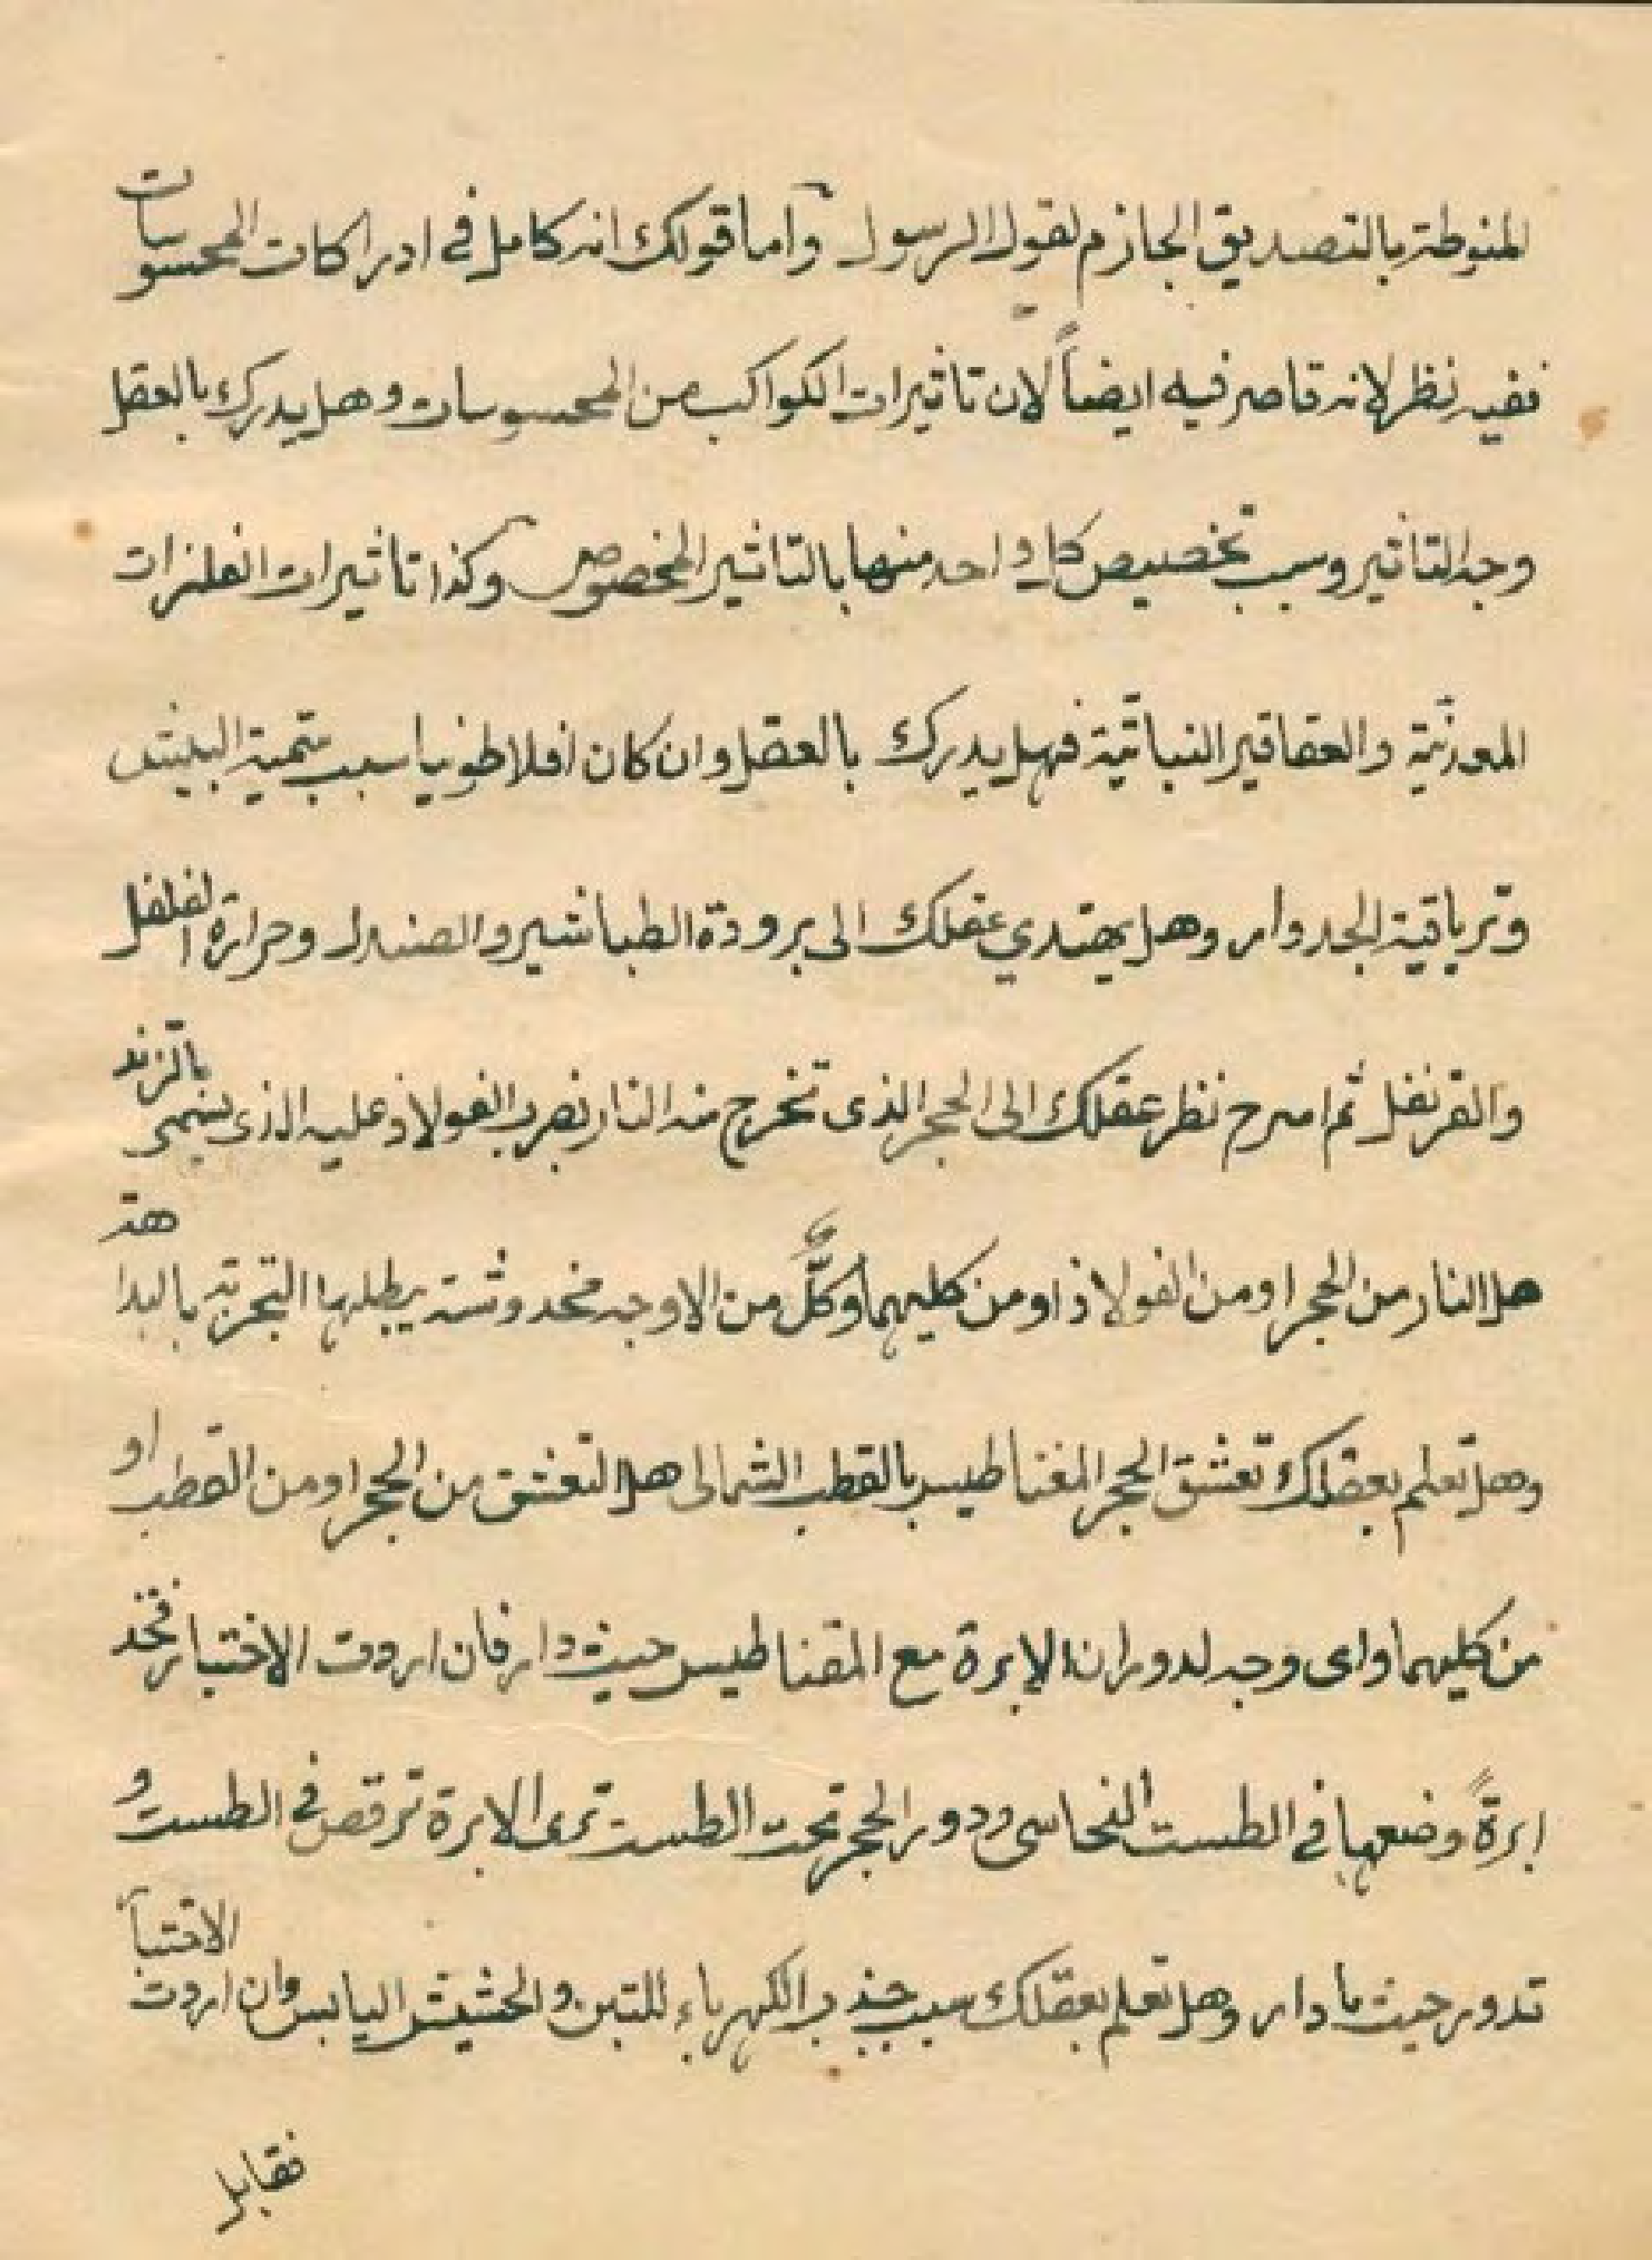 المنوطة بالتصديق الجازم لقول الرسول واما قولك انه كامل في ادراكات المحسوسات
ففيه نظر لانه قاصر فيه ايضاً لان تاثيرات الكواكب من المحسوسات وهل يدرك بالعقل
وجه التاثير وسبب تخصيص كل واحد منها بالتاثير المخصوص وكذا تاثيرات الفلزات
المعدنية والعقاقير النباتية فهل يدرك بالعقل وان كان افلاطونيا سبب سمية البيش
وترياقية الجدوار وهل يهتدي عقلك الى برودة الطباشير والصندل وحرارة الفلفل
والقرنفل ثم امرح نظر عقلك الى الحجر الذى تخرج منه النار بضرب الفولاذ عليه الذى يسمى بالزند
هل النار من الحجر او من الفولاذ او من كليهما وكلٌّ من الاوجه مخدوشة يبطلها التجربة بالبداهة
وهل تعلم بعقلك تعشق الحجر المغناطيس بالقطب الشمالى هل التعشق من الحجر او من القطب او
من كليهما واى وجه لدوران الابرة مع المقناطيس حيث دار فان اردت الاختبار فخذ
ابرةً وضعها في الطست النحاسى ودور الحجر تحت الطست ترى الابرة ترقص في الطست و
تدور حيث ما دار وهل تعلم بعقلك سبب جذب الكهرباء للتبن والحشيش اليابس وان اردت الاختبار
فقابل